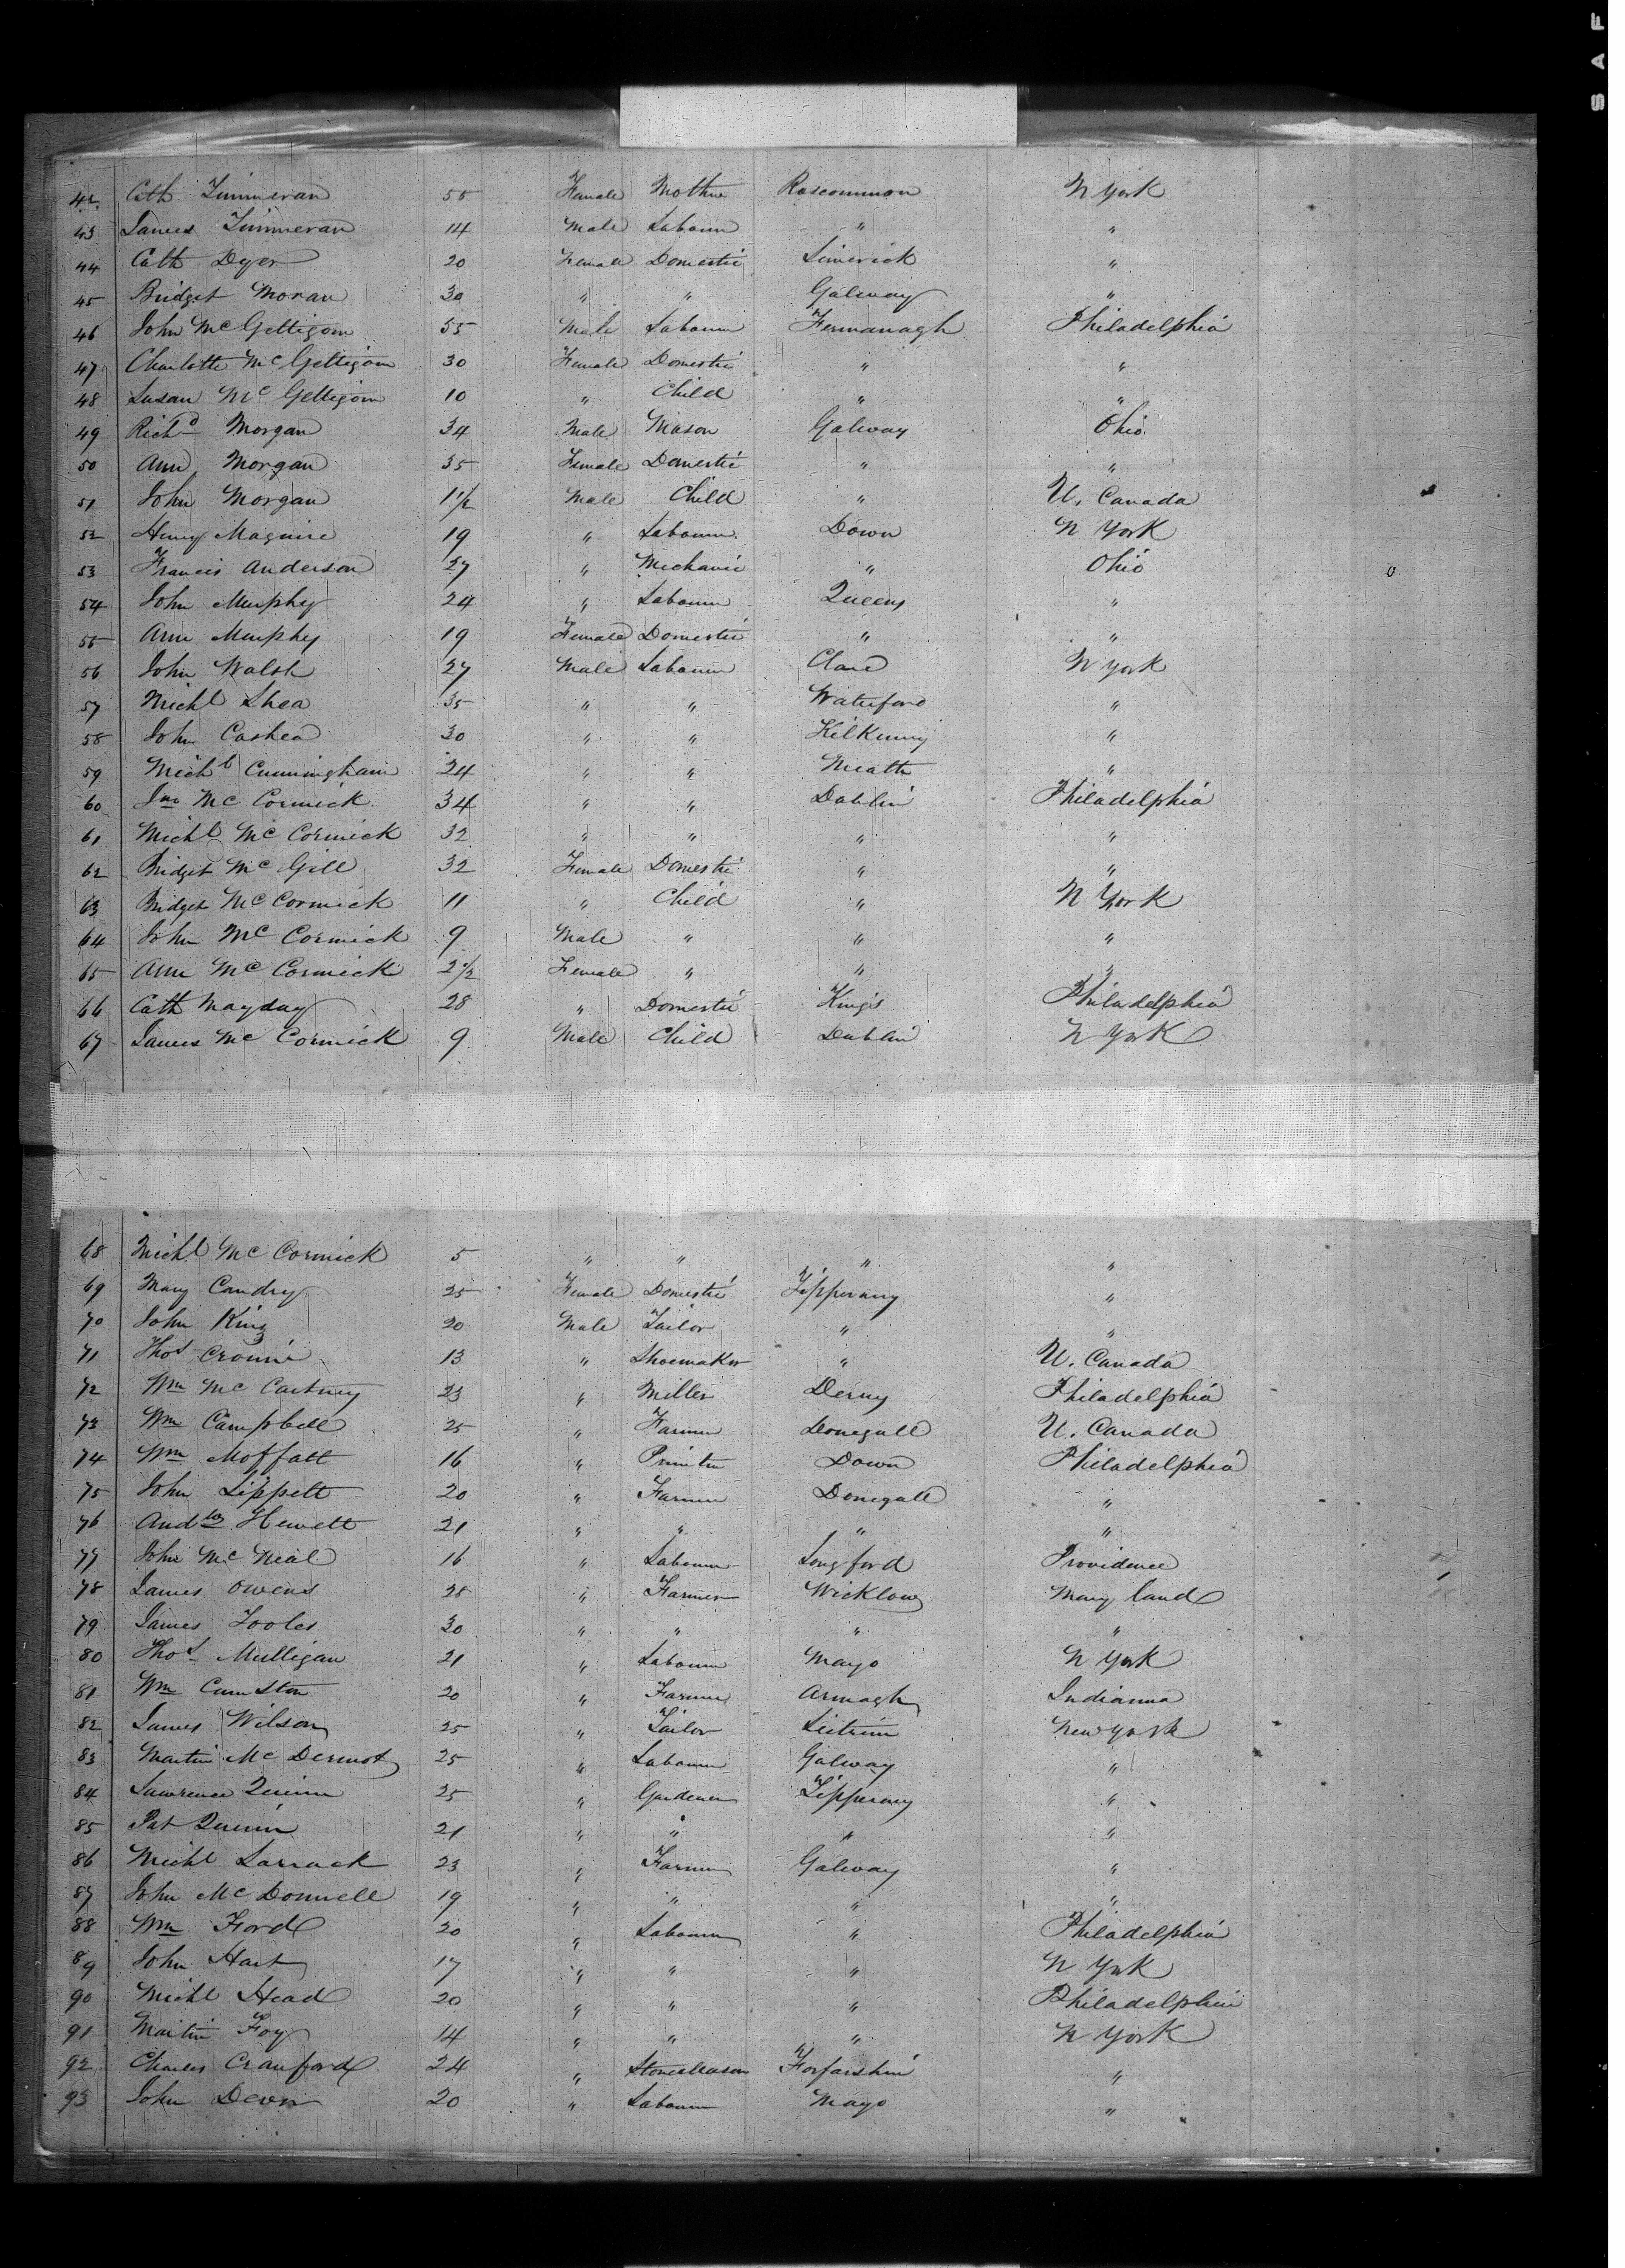 SAF
42 Cath Zimmeran 55 Female Mother Roscommon N York
43 James Zimmeran 14 Male Labourer " "
44 Cath Dyer 20 Female Domestic Limerick "
45 Bridget Moran 30 " " Galway "
46 John McGettigom 55 Male Labourer Fermanagh Philadelphia
47 Charlotte McGettigom 30 Female Domestic " "
48 Susan McGettigom 10 " Child " "
49 Richd Morgan 34 Male Mason Galway Ohio
50 Ann Morgan 35 Female Domestic " "
51 John Morgan 1 1/2 Male Child " U. Canada
52 Henry Maguire 19 " Labourer Down N York
53 Francis Anderson 27 " Mechanic " Ohio
54 John Murphy 24 " Labourer Queens "
55 Ann Murphy 19 Female Domestic " "
56 John Walsh 27 Male Labourer Clare N York
57 Michl Shea 35 " " Waterford "
58 John Cashea 30 " " Kilkenny "
59 Michl Cunningham 24 " " Meath "
60 Jno McCormick 34 " " Dublin Philadelphia
61 Michl McCormick 32 " " " "
62 Bridget McGill 32 Female Domestic " "
63 Bridget McCormick 11 " Child " N York
64 John McCormick 9 Male " " "
65 Ann McCormick 2 1/2 Female " " "
66 Cath Mayday 28 " Domestic Kings Philadelphia
67 James McCormick 9 Male Child Dublin N York
68 Michl McCormick 5 " " " "
69 Mary Candry 25 Female Domestic Tipperary "
70 John King 20 Male Tailor " "
71 Thos Cronin 13 " Shoemaker " U. Canada
72 Wm McCartney 23 " Miller Derry Philadelphia
73 Wm Campbell 25 " Farmer Donegall U. Canada
74 Wm Moffatt 16 " Printer Down Philadelphia
75 John Lippett 20 " Farmer Donegall "
76 Andw Hewett 21 " " " "
77 John McNeal 16 " Labourer Longford Providence
78 James Owens 28 " Farmer Wicklow Mary land
79 James Tooles 30 " " " "
80 Thos Mulligan 21 " Labourer Mayo N York
81 Wm Cumston 20 " Farmer Armagh Indianna
82 James Wilson 25 " Tailor Leitrim New York
83 Martin McDermot 25 " Labourer Galway "
84 Lawrence Quinn 25 " Gardener Tipperary "
85 Pat Quinn 21 " " " "
86 Michl Larrack 23 " Farmer Galway "
87 John McDonnell 19 " " " "
88 Wm Ford 20 " Labourer " Philadelphia
89 John Hart 17 " " " N York
90 Michl Head 20 " " " Philadelphia
91 Martin Foy 14 " " " N York
92 Charles Crawford 24 " Stonemason Forfarshire "
93 John Devin 20 " Labourer Mayo "